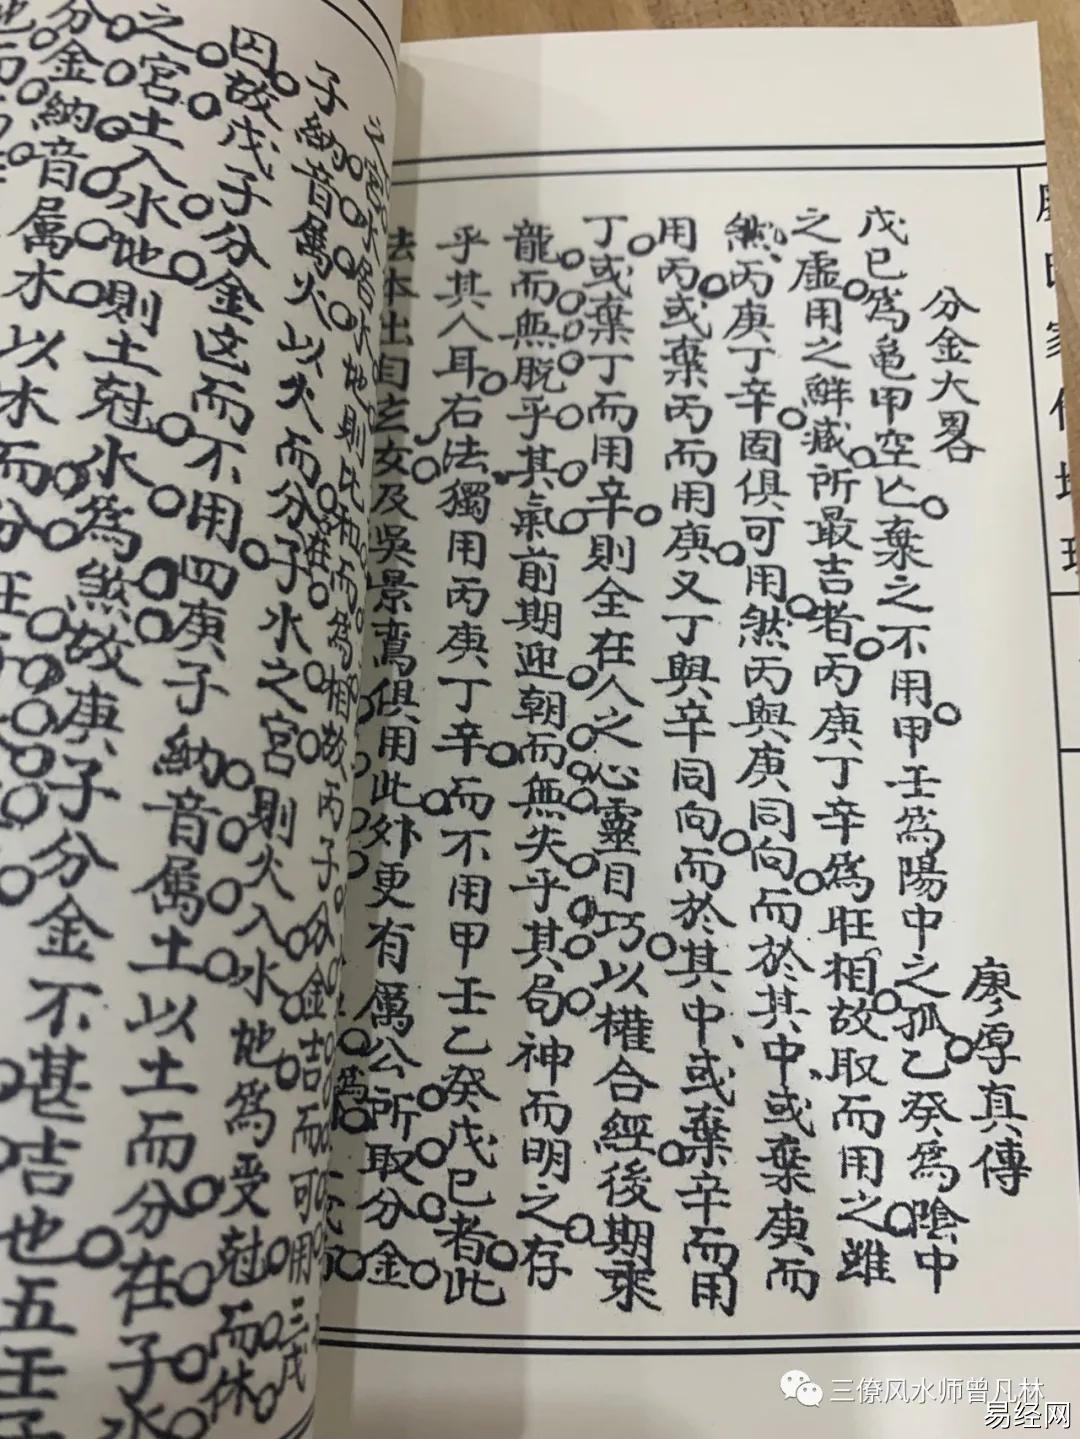 分金大畧
廖厚真傳
戊巳為龜甲空亡棄之不用甲壬為陽中之孤乙癸為陰中
之虛用之鮮減所最吉者丙庚丁辛為旺相故取而用之雖
然丙庚丁辛固俱可用然丙與庚同向而於其中或棄庚而
用丙或棄丙而用庚又丁與辛同向而於其中或棄辛而用
丁或棄丁而用辛則全在人之心靈目巧以權合經後期乘
龍而無脫乎其氣前期迎朝而無失乎其局神而明之存
乎其人耳右法獨用丙庚丁辛而不用甲壬乙癸戊巳者此
法本出自玄女及吳景鸞俱用此外更有厲公所取分金
地則比和而為相故丙子分金吉而可用三戊
子納音屬火以火而分在子水之宮則火入水地為受尅而休
囚故戊子分金这而不用四庚子納音屬土以土而分在子水
之宮土入水地則土尅水為煞故庚子分金不甚吉也五壬子
分金納音屬木以木而分
三僚风水师曾凡林
易经网